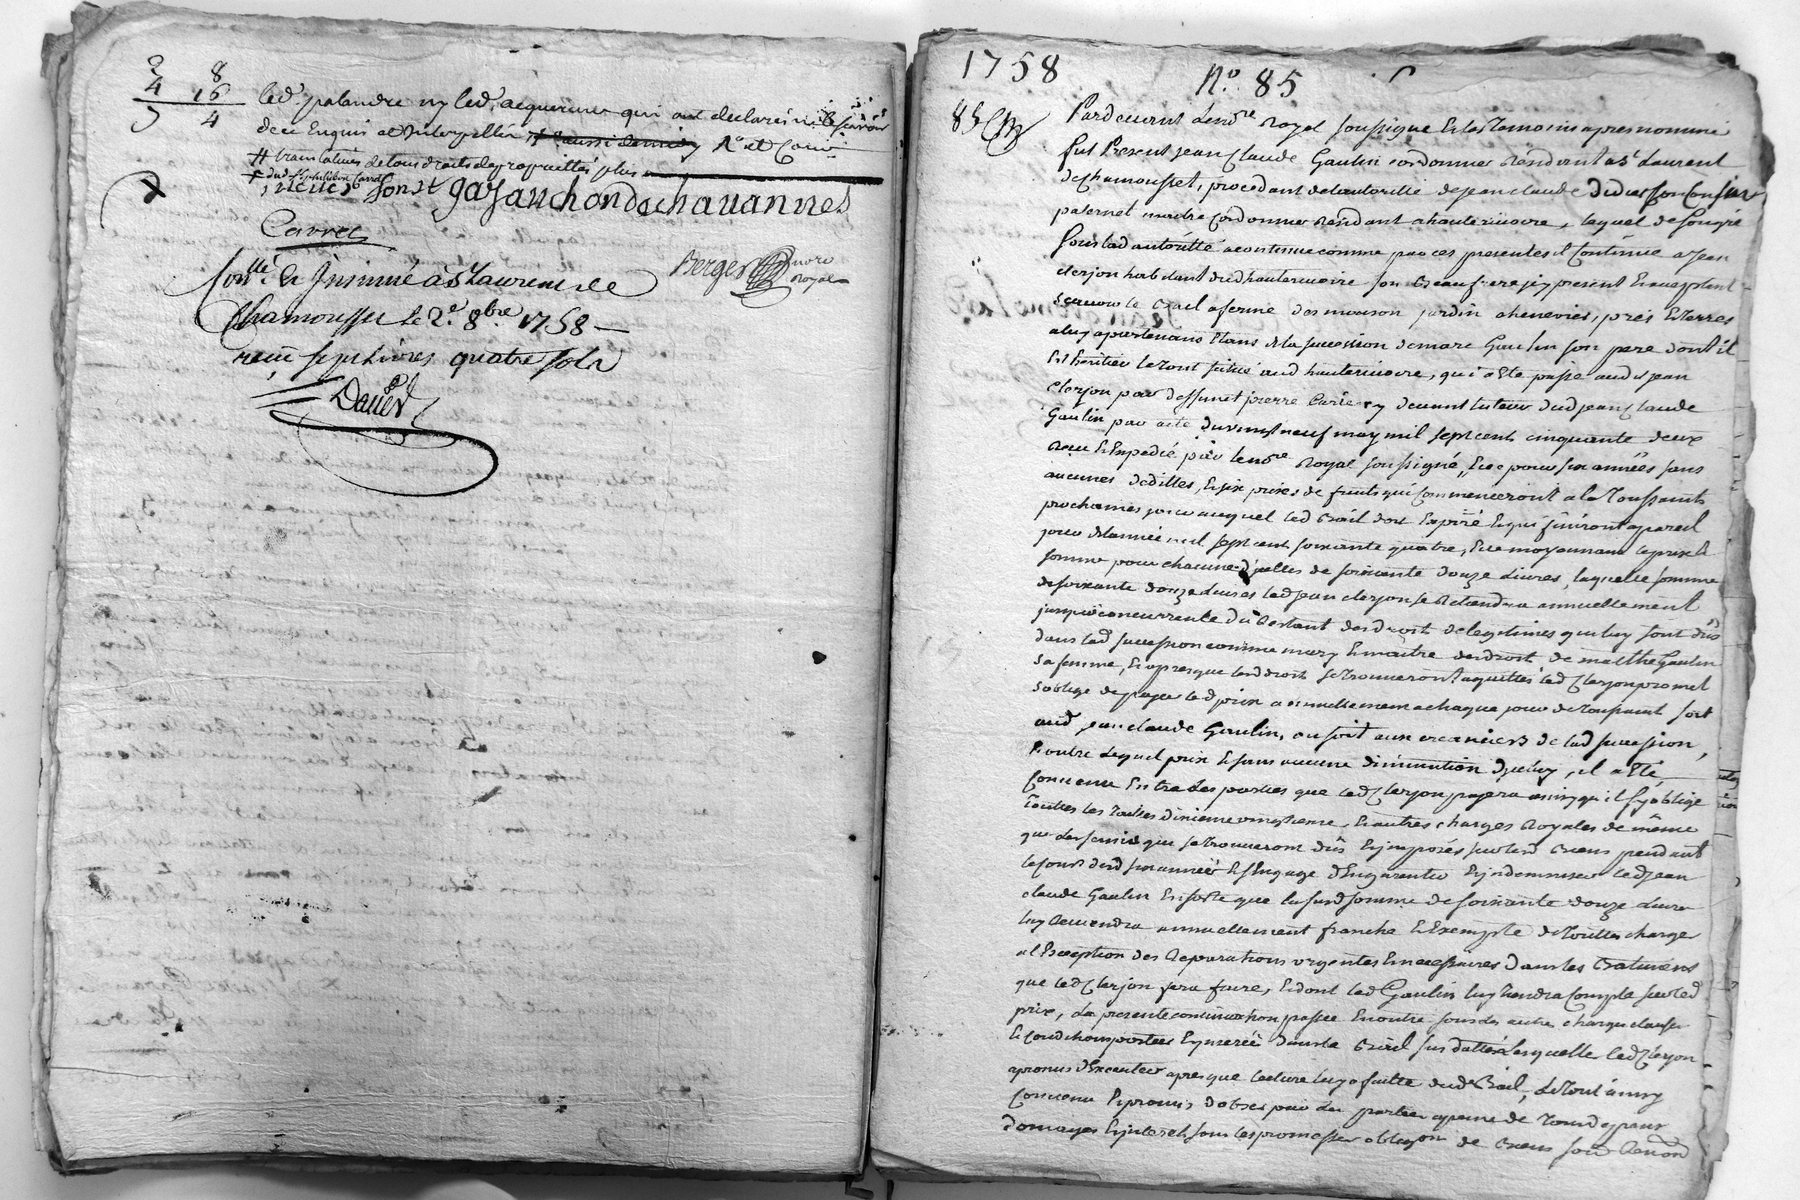 8
4 16
4
led. palandre ny led. acquereur qui ont declaré ne scavoir
de ce Enquis et Interpellés
# translatives de tous droits de proprietté plus
font gayauchondechavannes
Cavret
Berger no.re Royal
Con.llé et Insinué à St Laurent de
Chamousset le 2.e 8.bre 1758
reçu sept Livres quatre sols
David
1758
N.o 85
85
Pardevant Le no.re Royal soussigné Et les Temoins apres nommés
fut Present jean Claude Gaulin cordonnier Residant a St Laurent
de Chamousset, procedant de l'autorité de jean claude Didier son Curateur
paternel maitre Cordonnier Residant a hauterivoire, lequel de son gré
sous lad autorité a continué comme par ces presentes il Continue a Jean
clerjon habitant dud hauterivoire son Beaufrere icy present Et acceptant
scavoir le Bail a ferme des maison jardin chenevier, prés Et terres
a luy apartenans de la succession de marc Gaulin son pere dont il
Est heritier le tout situé aud hauterivoire, qui a Eté passé aud jean
Clerjon par deffunt pierre devant tuteur dud jean Claude
Gaulin par acte du vingt neuf may mil sept cent cinquante deux
Reçu Et Expedié par le no.re Royal soussigné, Et ce pour six années sans
aucunes dedittes, Et six prises de fruits qui Commenceront a la Toussaints
prochaines jour auquel led Bail doit Expiré Et qui finiront a pareil
jour de l'année mil sept cent soixante quatre, Et ce moyennant le prix Et
somme pour chacune d'icelles de soixante douze Livres, laquelle somme
de soixante douze Livres led jean clerjon se Retiendra annuellement
jusqu'à concurrente du Restant des droits de legitimes qui luy sont dûs
dans lad succession comme mary Et maitre des droits de Gaulin
sa femme, Et apres que lesd droits se trouveront aquittés led Clerjon promet
s'oblige de payer led prix annuellement a chaque jour de Toussaint soit
aud jean claude Gaulin, ou soit aux creanciers de lad succession,
Et outre Lequel prix Et sans aucune diminution d'iceluy, il a Eté
Convenu Entre Les parties que led Clerjon payera ainsy qu'il s'y oblige
toutes les Tailles dixieme vingtieme, Et autres charges Royales de même
que Les servis qui se trouveront dûs Et imposés sur lesd Biens pendant
le cours desd six années Et s'Engage d'En garentir Et indemniser led jean
claude Gaulin En sorte que la susd somme de soixante douze Livres
luy Reviendra annuellement franche Et Exempte de Toutes charges
a l'Exception des Reparations urgentes Et necessaires dans les Batiments
que led Clerjon fera faire, Et dont led Gaulin luy tiendra Compte sur led
prix, La presente continuation passée En outre sous les autres charges clauses
Et conditions portées Et inserée dans le Bail sus datté Lesquelles led Clerjon
a promis d'Executer apres que lecture luy a faitte dud Bail, Le tout ainsy
Convenu Et promis d'observer par les parties a peine de Tous depans
domages Et interets sous les promesses obligaon de Biens